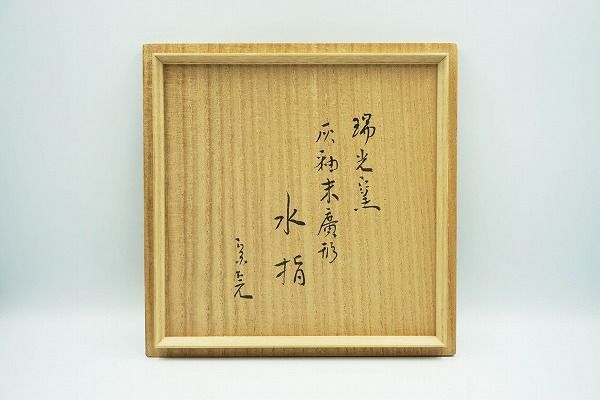 瑞光窯
灰釉末廣形
水指
宗完